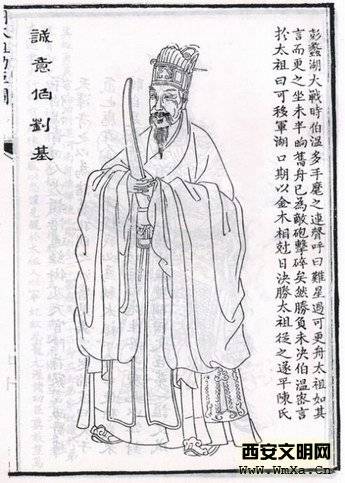 彭蠡湖大戰時伯溫多手麾之連聲呼曰難星過可更舟太祖如其
言而更之坐未半晌舊舟已為敵砲擊碎矣然勝負未決伯溫密言
扵太祖曰可移軍湖口期以金木相尅日決勝太祖從之遂平陳氏
誠意伯劉基
西安文明网
www.WmXa.Cn